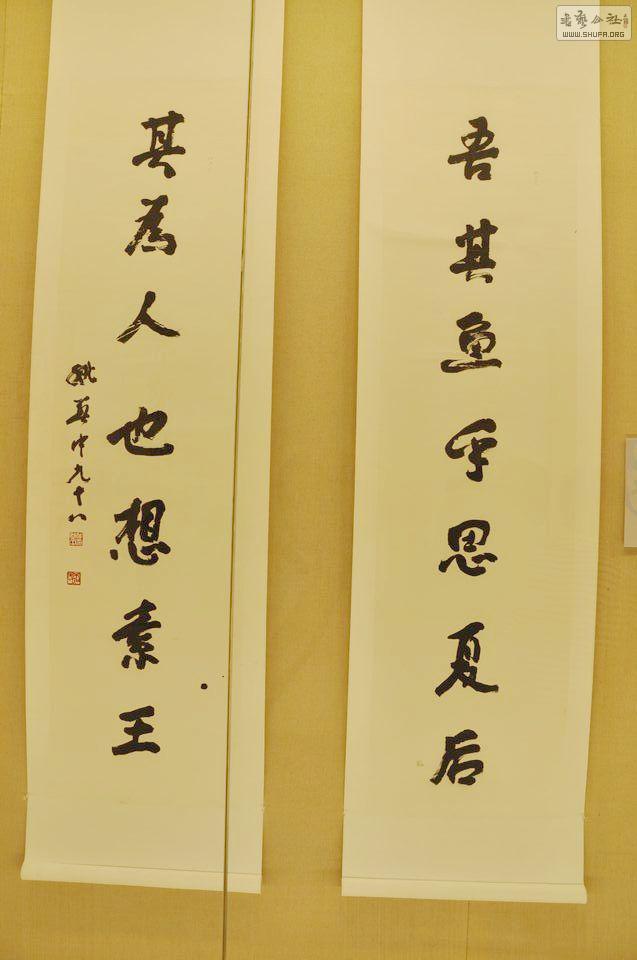 吾其鱼乎思夏后
其為人也想素王
姚奠中九十八
书艺公社
WWW.SHUFA.ORG